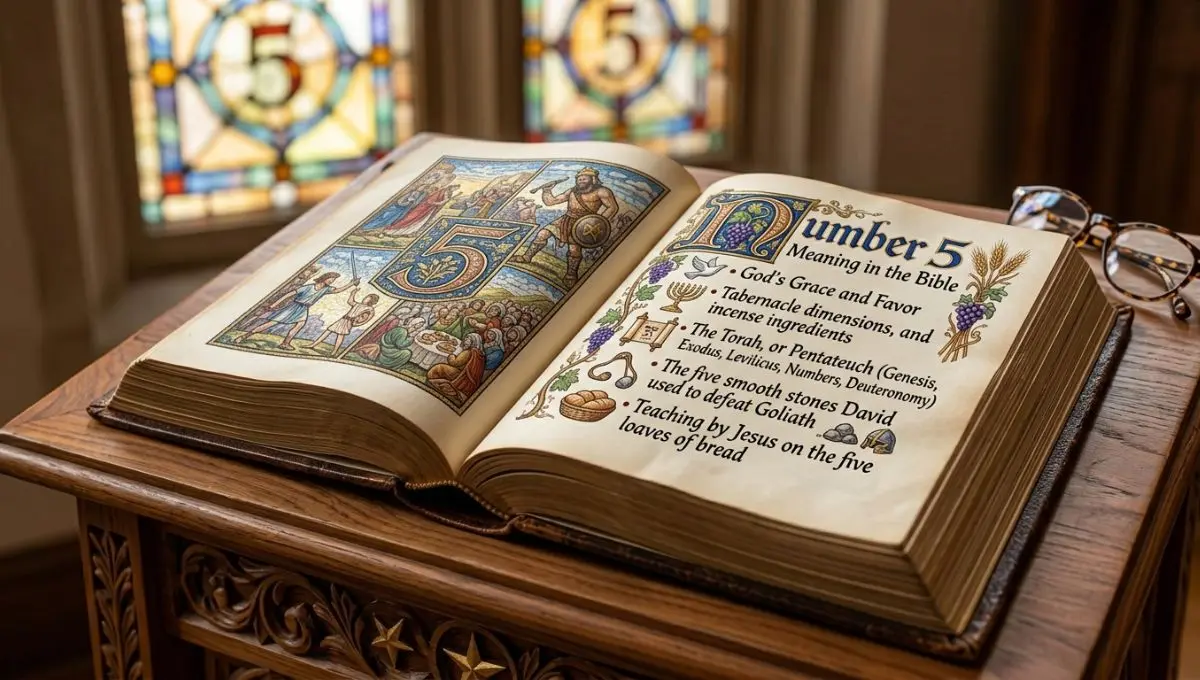 5
5
5
Number 5
Meaning in the Bible
• God's Grace and Favor
• Tabernacle dimensions, and
incense ingredients
• The Torah, or Pentateuch (Genesis,
Exodus, Levilicus, Numbers, Deuteronomy)
• The five smooth stones David
used to defeat Goliath
• Teaching by Jesus on the five
loaves of bread